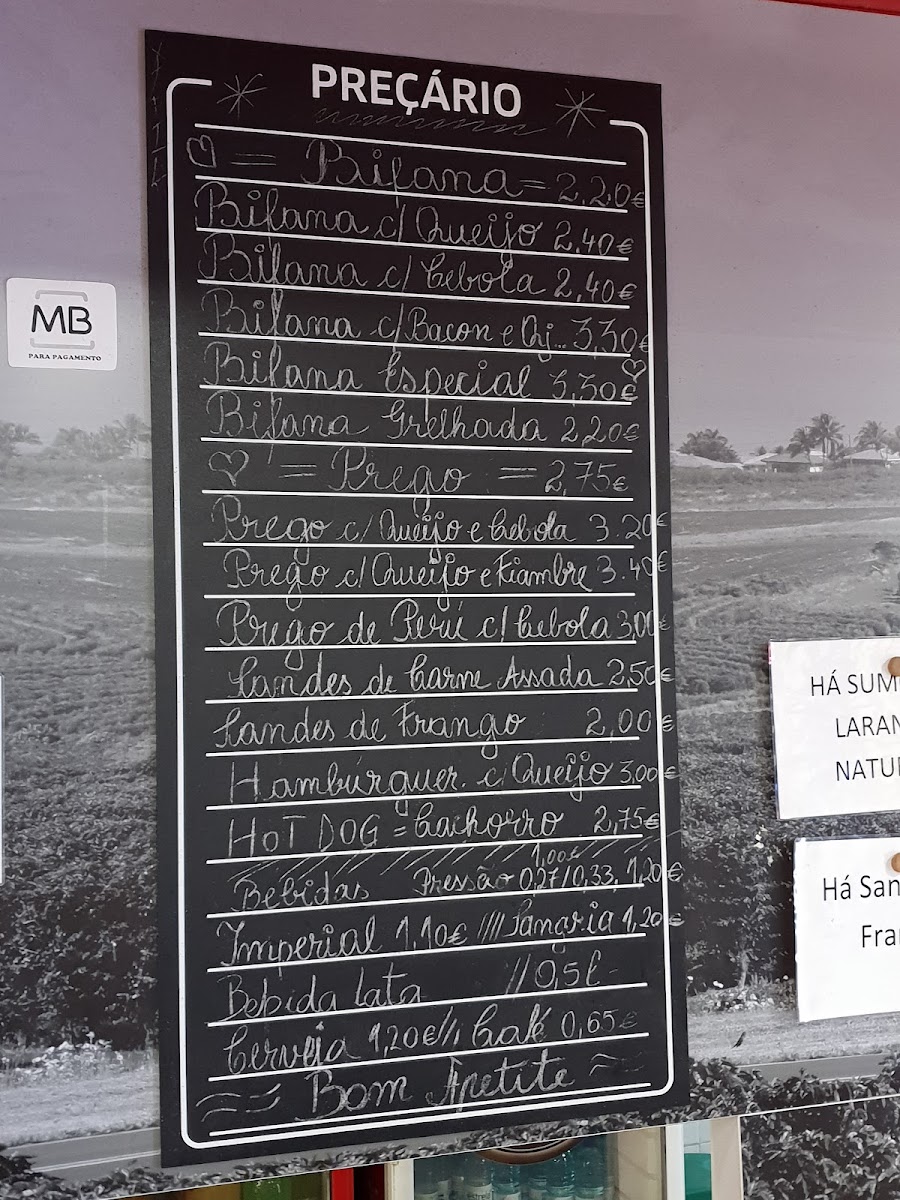 PREÇÁRIO
= Bifana = 2,20€
Bifana c/ Queijo 2,40€
Bifana c/ Cebola 2,40€
Bifana c/ Bacon e Qj... 3,30€
Bifana Especial 3,30€
Bifana Grelhada 2,20€
= Prego = 2,75€
Prego c/ Queijo e Cebola 3.20€
Prego c/ Queijo e Fiambre 3.40€
Prego de Perú c/ Cebola 3,00€
Sandes de Carne Assada 2,50€
Sandes de Frango 2,00€
Hambúrguer. c/ Queijo 3,00€
HOT DOG = Cachorro 2,75€
1,00€
Bebidas Pressão 0,27/0,33, 1,20€
Imperial 1,10€ //// Sangria 1,20€
Bebida lata // 0,5l -
Cerveja 1,20€ // Café 0,65€
Bom Apetite
MB
PARA PAGAMENTO
HÁ SUM
LARAN
NATU
Há San
Fra